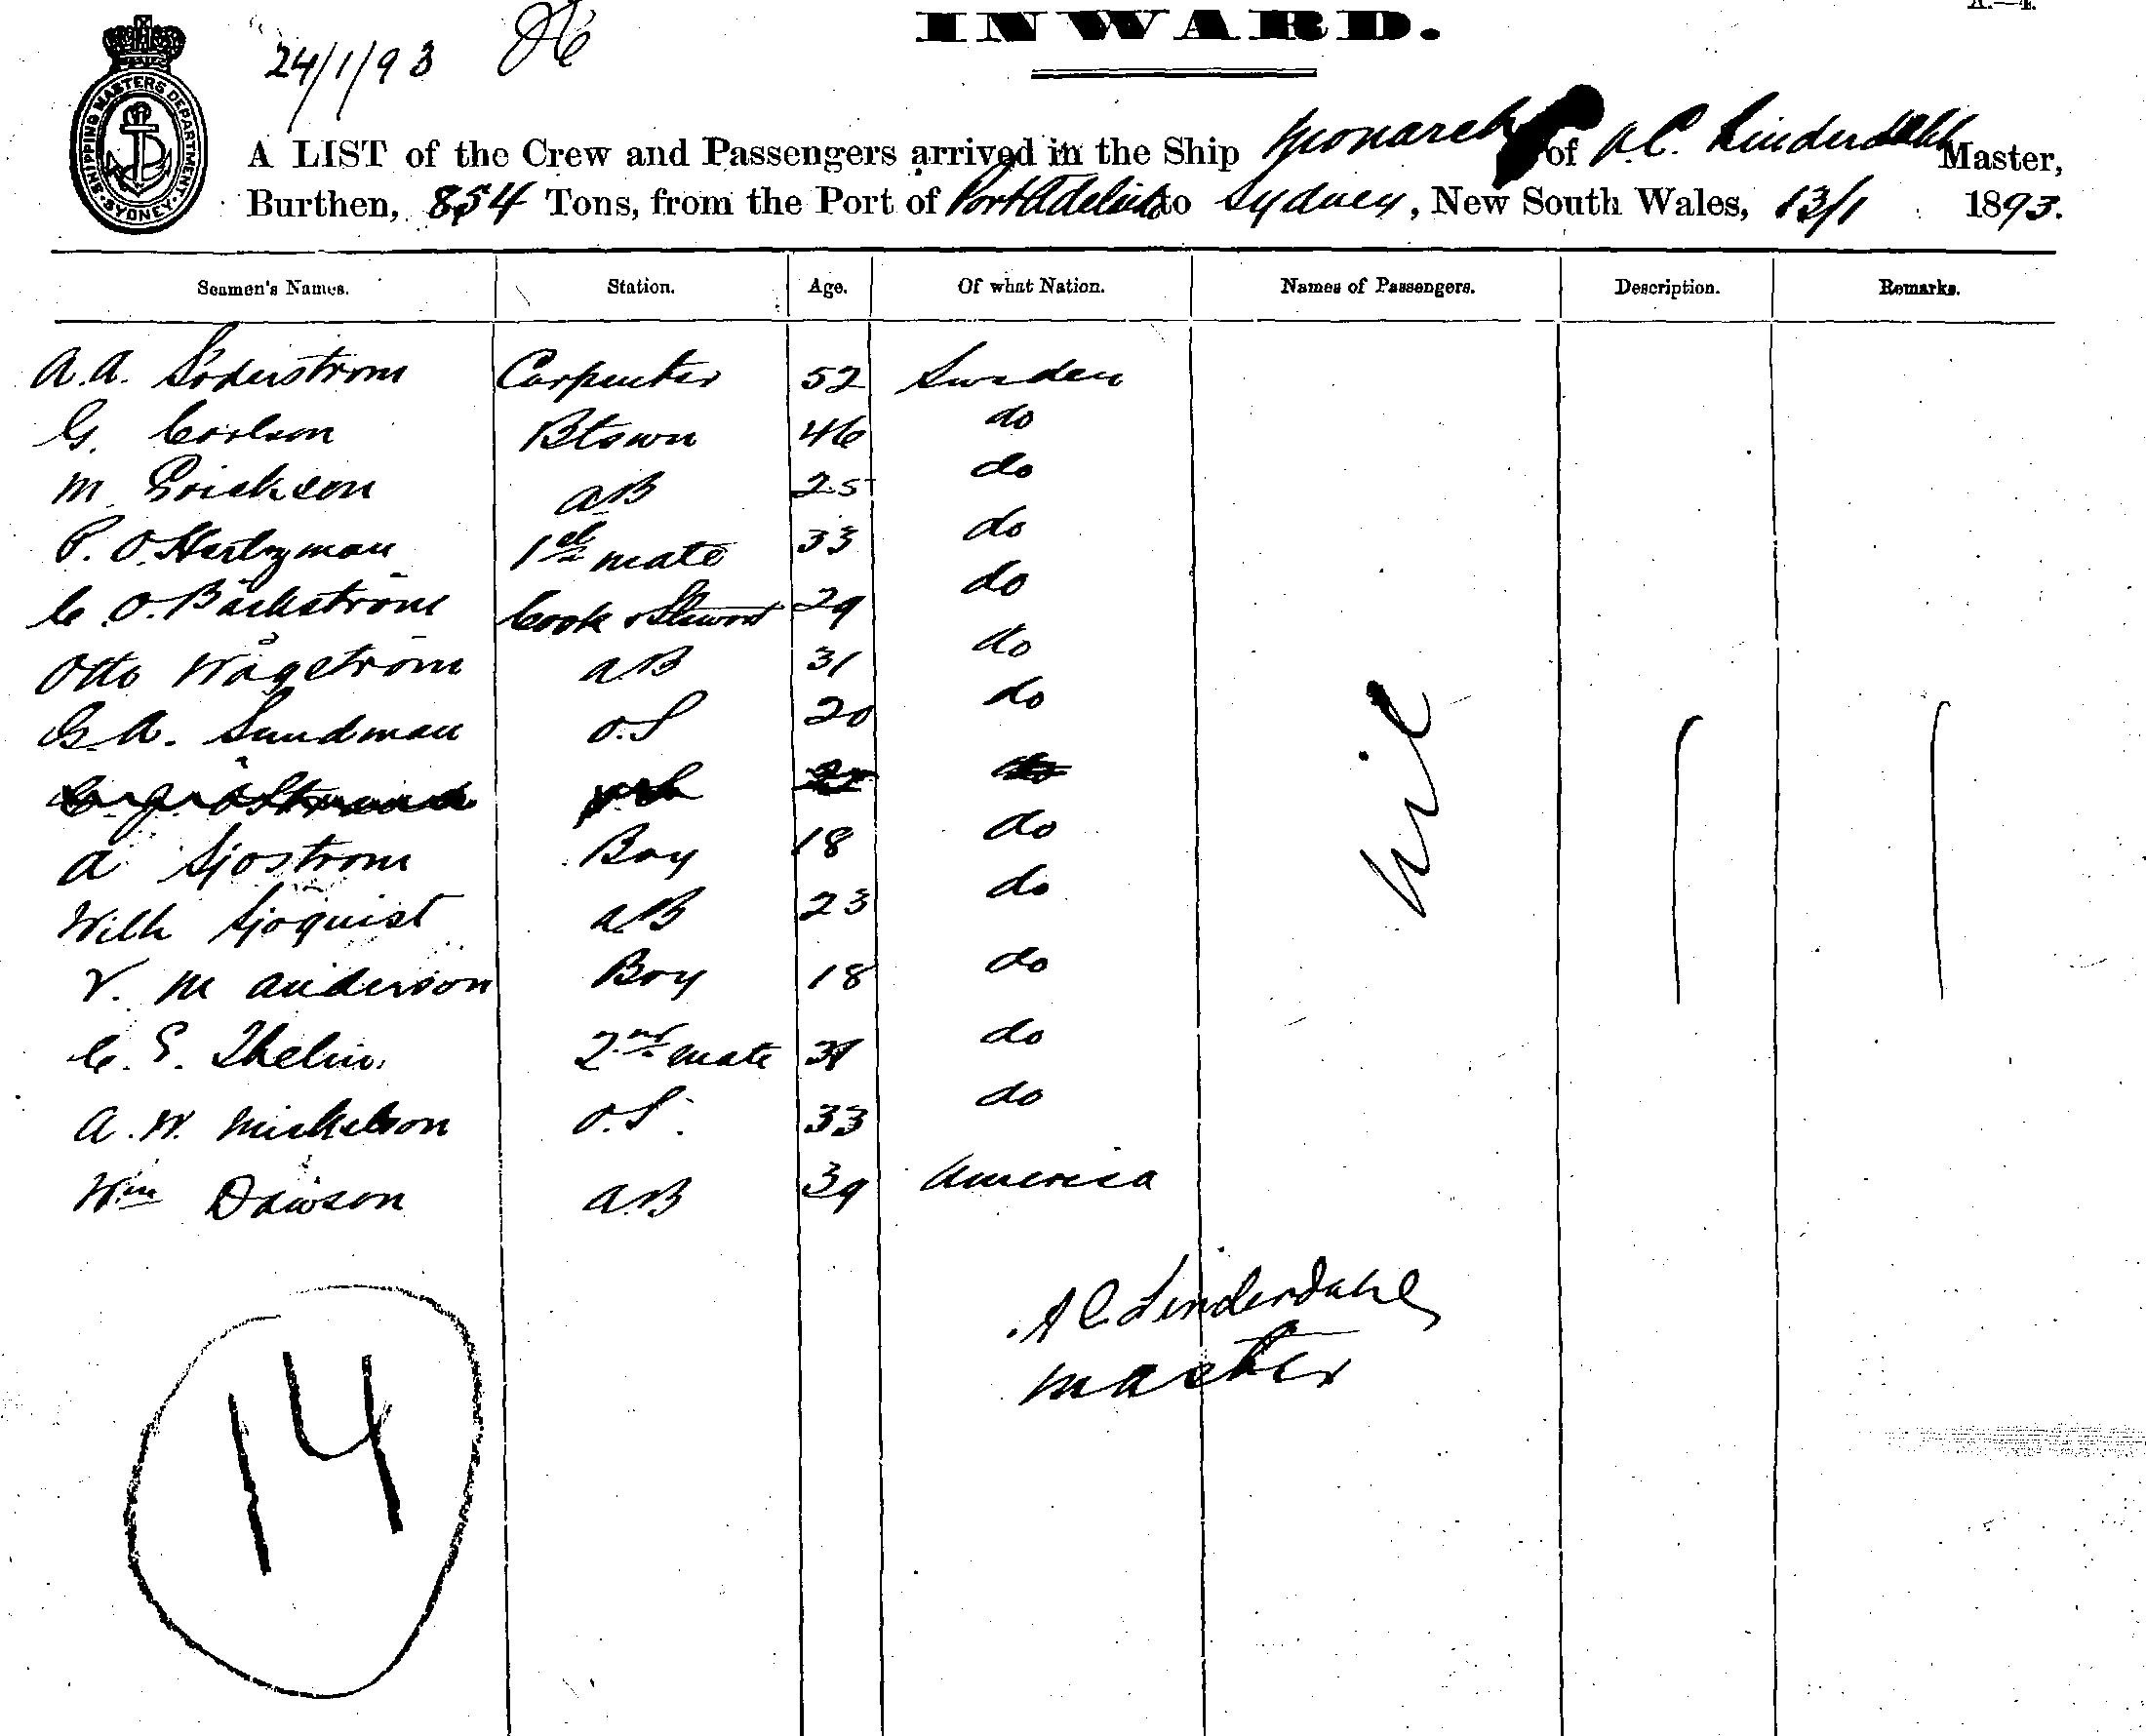 A.—4.
INWARD.
24/1/93
SHIPPING MASTERS DEPARTMENT
SYDNEY
A LIST of the Crew and Passengers arrived in the Ship Monarch of A.C. Linderdahl Master,
Burthen, 854 Tons, from the Port of Port Adelaide to Sydney, New South Wales, 13/1 1893.
Seamen's Names. Station. Age. Of what Nation. Names of Passengers. Description. Remarks.
A.A. Söderstrom Carpenter 52 Sweden
G. Carlson Btswn 46 do
M Erickson AB 25 do
P. O. 1st mate 33 do
C. O. Bäckström Cook & Steward 29 do
Otto Wågström AB 31 do
G.A. Sundman O.S 20 do
A Sjostrom Boy 18 do
Wilh Sjoquist AB 23 do
V. M Anderson Boy 18 do
C. E. Thelin 2nd mate do
A. W. Mickelson O.S. 33 do
Wm Dawson AB 39 America
nil
A C Linderdahl
Master
14